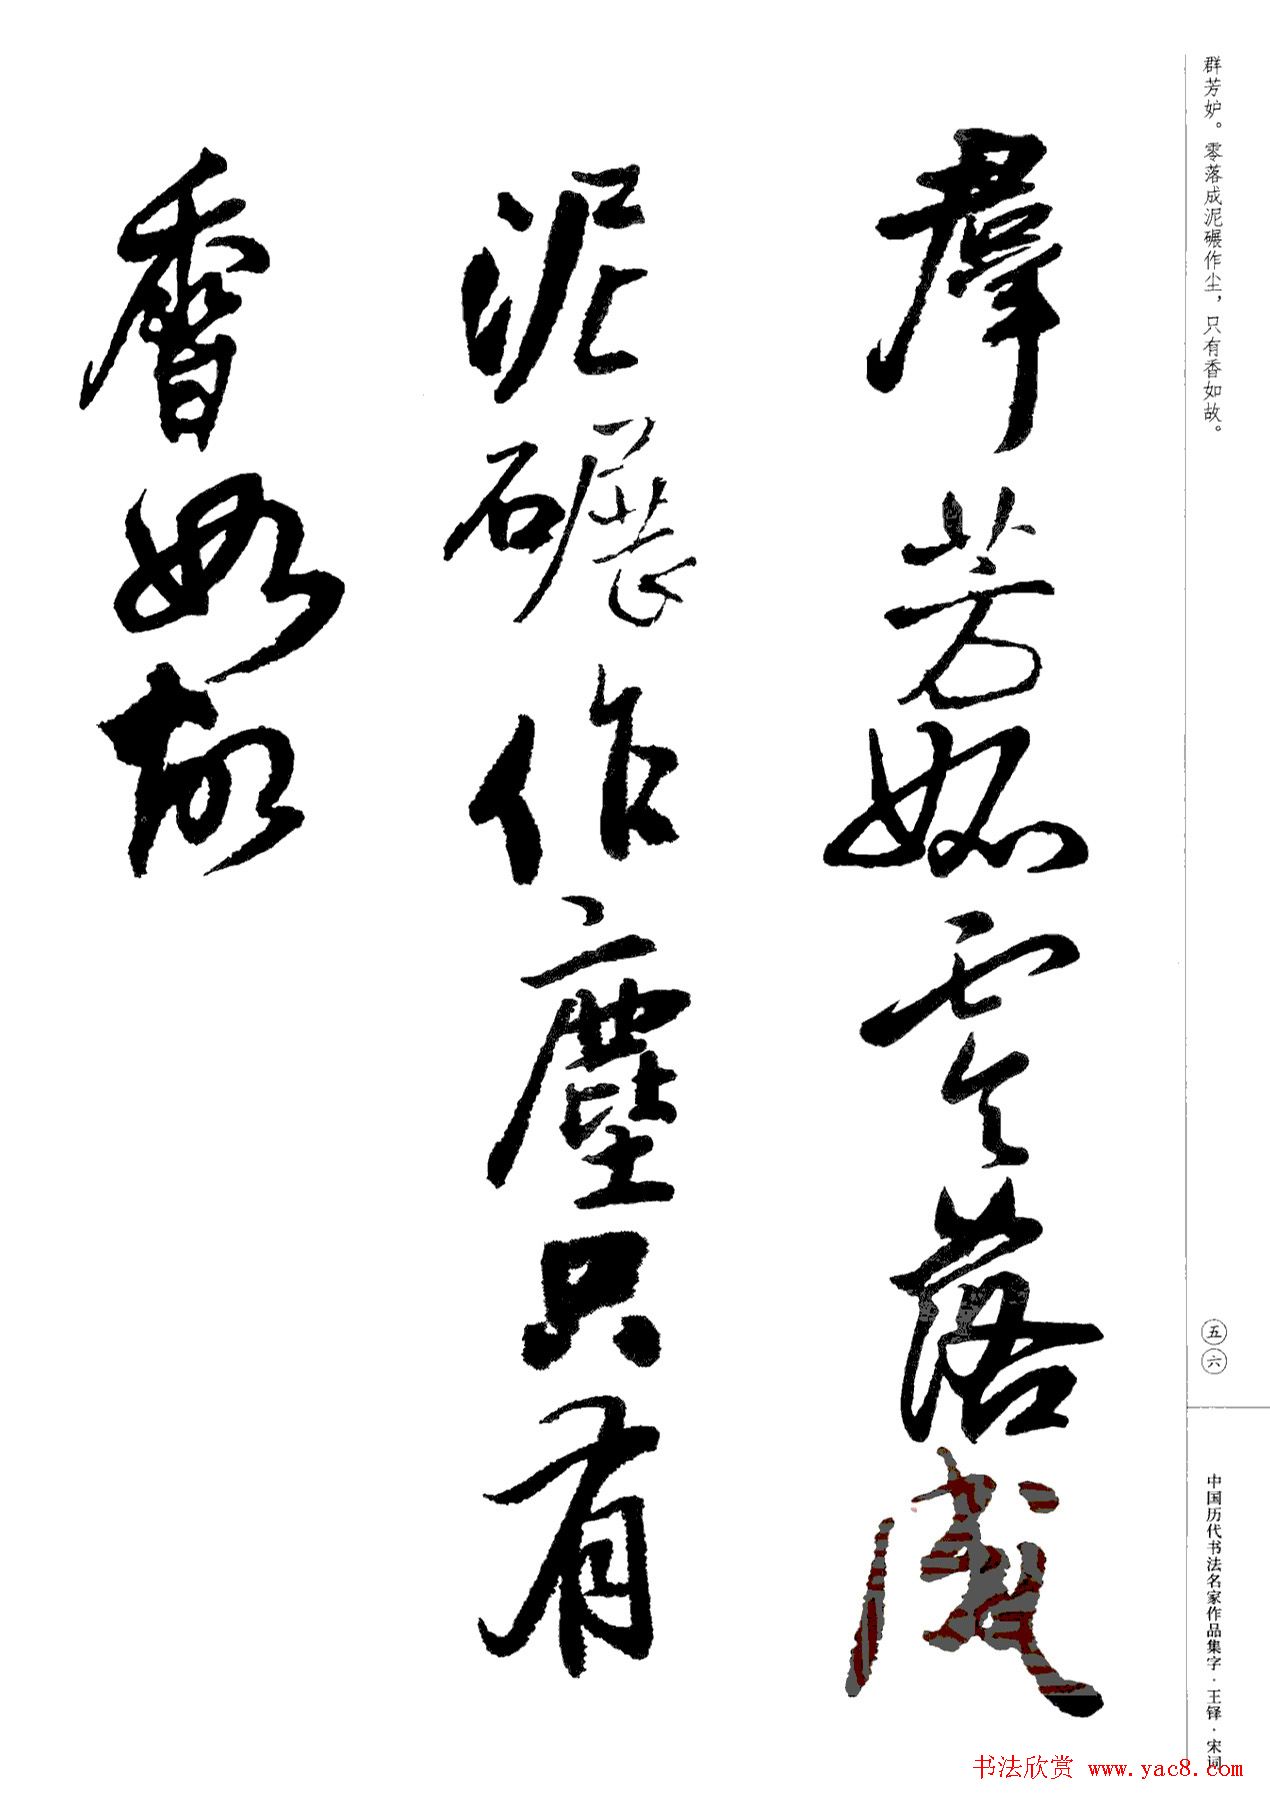 群芳妒。零落成泥碾作尘，只有香如故。
羣芳妬零落成
泥碾作塵只有
香如故
五六
中国历代书法名家作品集字·王铎·宋词
书法欣赏 www.yac8.com